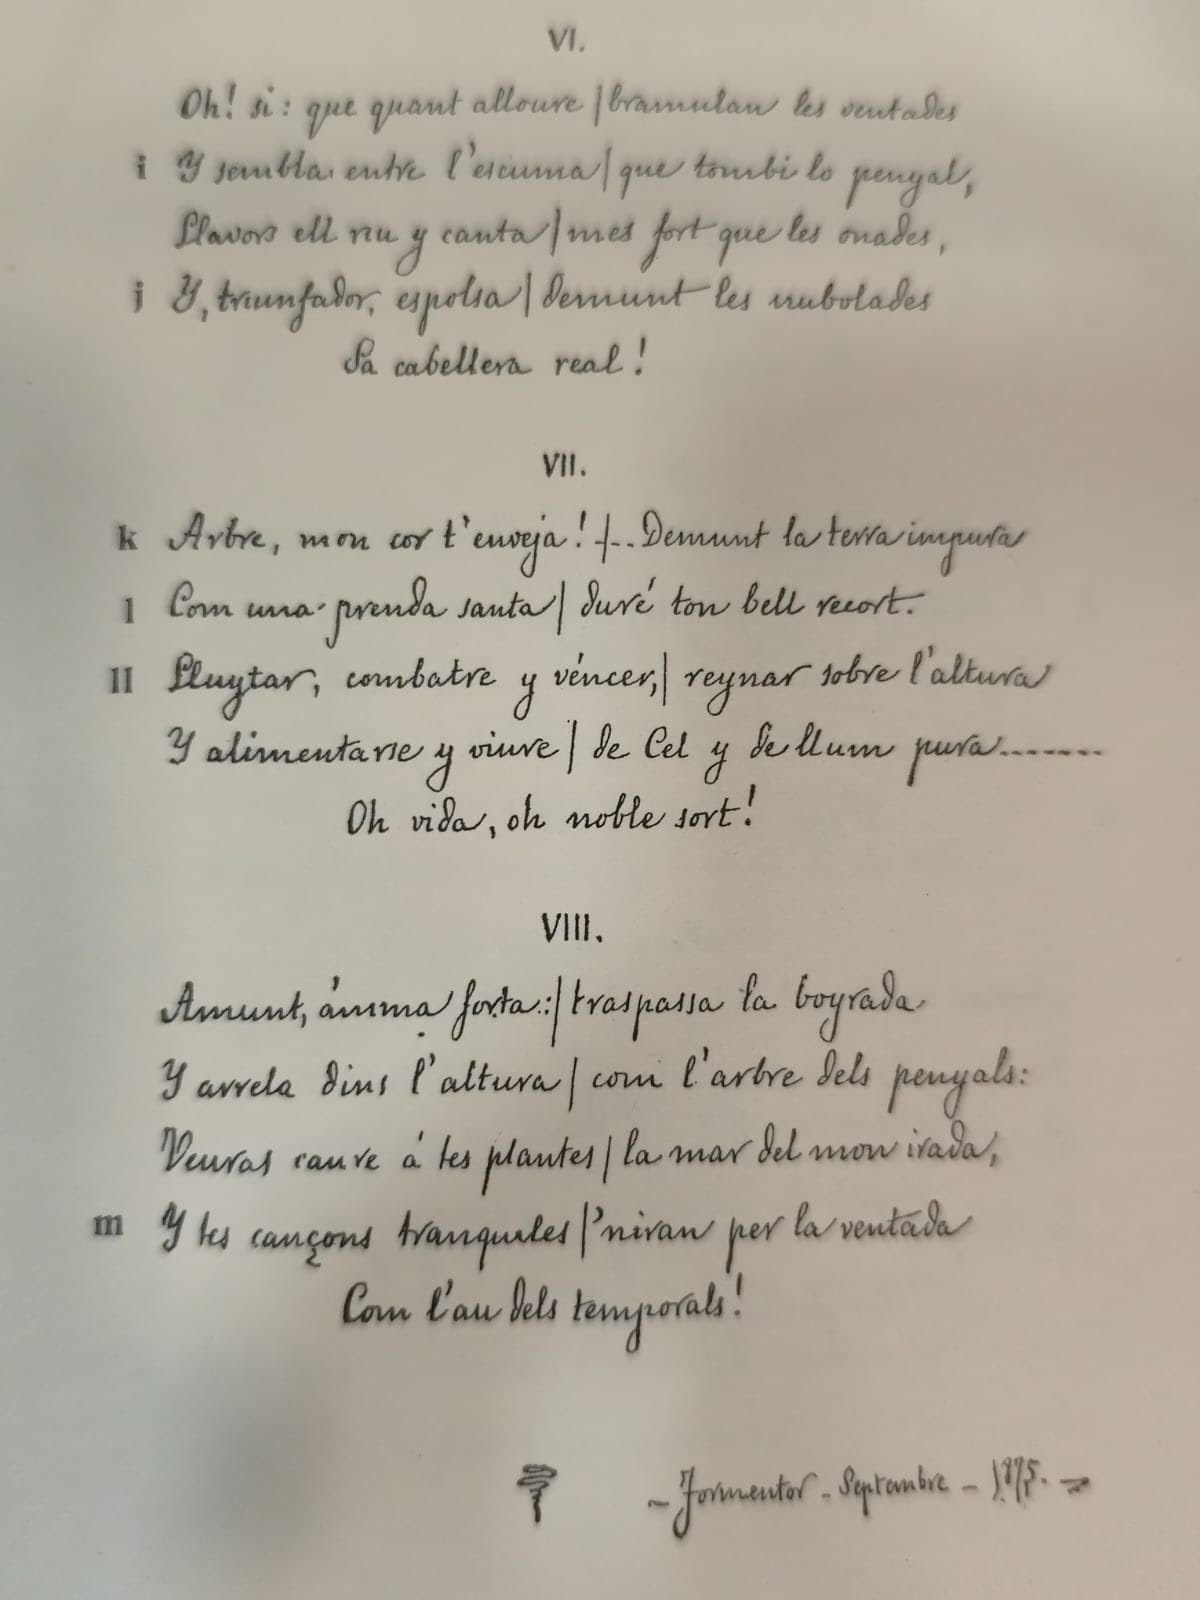 VI.
Oh! si: que quant alloure | bramulan les ventades
i Y sembla entre l'escuma | que tombi lo penyal,
Llavors ell riu y canta | mes fort que les onades,
j Y, triunfador, espolsa | demunt les nubolades
Sa cabellera real!
VII.
k Arbre, mon cor t'enveja! |... Demunt la terra impura
l Com una prenda santa | duré ton bell recort.
ll Lluytar, combatre y véncer, | reynar sobre l'altura
Y alimentarse y viure | de Cel y de llum pura.......
Oh vida, oh noble sort!
VIII.
Amunt, ánima forta: | traspassa la boyrada
Y arrela dins l'altura | com l'arbre dels penyals:
Veuras caure á tes plantes | la mar del mon irada,
m Y tes cançons tranquiles | 'niran per la ventada
Com l'au dels temporals!
– Formentor – Septembre – 1875. –